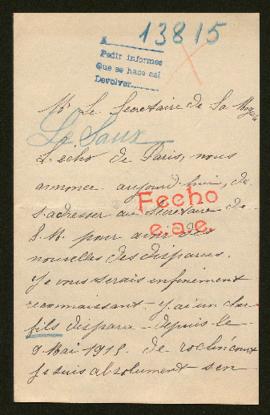 13815
A
Pedir informes
Que se hace así
Devolver
Mr Le Secretaire de Sa
Le Saux
L'echo de Paris, nous
annonce aujourd'hui, de
s'adresser au Secretaire de
S.M. pour avoir des
nouvelles des disparus.
Fecho
e.a.e.
Je vous serais infiniment
reconnaissant
fils disparu - depuis le
9 Mai 1915. de roclincourt
Je suis absolument sen